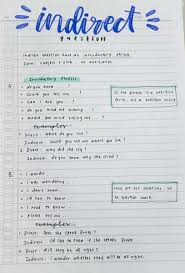 indirect
question
Indirect question have an introductory phrase
Form : subject + verb , no auxiliary
Introductory Phrases
A. • do you know ...?
• Could you tell me ...?
• Can I ask you ...?
• do you mind telling me ...?
• Would you mind telling me ...?
If the phrase is a question
form, add a question mark
examples:
Direct : Which do you like?
Indirect : Could you tell me what you like?
Direct : Why did she cry?
Indirect : do you know why she cried?
B. • I wonder ...
• I was wondering ...
• I don't know ...
• I'd like to know
• I need to know ...
• Please tell me ...
They are not questions, so no
question mark.
examples:
Direct : Does she speak
Indirect : I'd like to know if she speaks
Direct : Will they be all right?
Indirect : I wonder whether they will be all right.